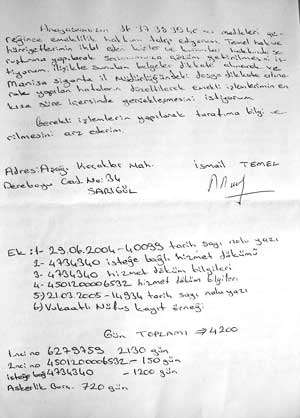 Anayasanın 17. 37. 38. 39. 40 ncı maddeleri ge-
reğince emeklilik hakkımı talep ediyorum. Temel hak ve
hürriyetlerimin ihlal eden kişiler ve kurumlar hakkında so-
ruşturma yapılarak sorunumuza çözüm getirilmesini is-
tiyorum. İlişikte sunulan belgeler dikkate alınarak ve
Manisa Sigorta il Müdürlüğündeki dosya dikkate alına-
rak yapılan hataların düzeltilerek emekli işlemlerimin en
kısa süre içersinde gerçekleşmesini istiyorum
Gerekli işlemlerin yapılarak tarafıma bilgi ve-
rilmesini arz ederim.
Adres: Aşağı Koçaklar Mah.
Dereboyu Cad. No: 34
SARIGÖL
İsmail TEMEL
Ek: 1- 29.06.2004-40099 tarih sayı nolu yazı
2- 4734340 isteğe bağlı hizmet dökümü
3- 4734340 hizmet döküm bilgileri
4- 4501200006532 hizmet döküm bilgileri
5) 21.03.2005-14934 tarih sayı nolu yazı
6) Vukuatlı Nüfus kayıt örneği
Gün TOPLAMI ⇒ 4200
1.nci no 6279759 2130 gün
2.nci no 4501200006532 - 150 gün
isteğe bağ 4734340 - 1200 gün
Askerlik Borç. 720 gün